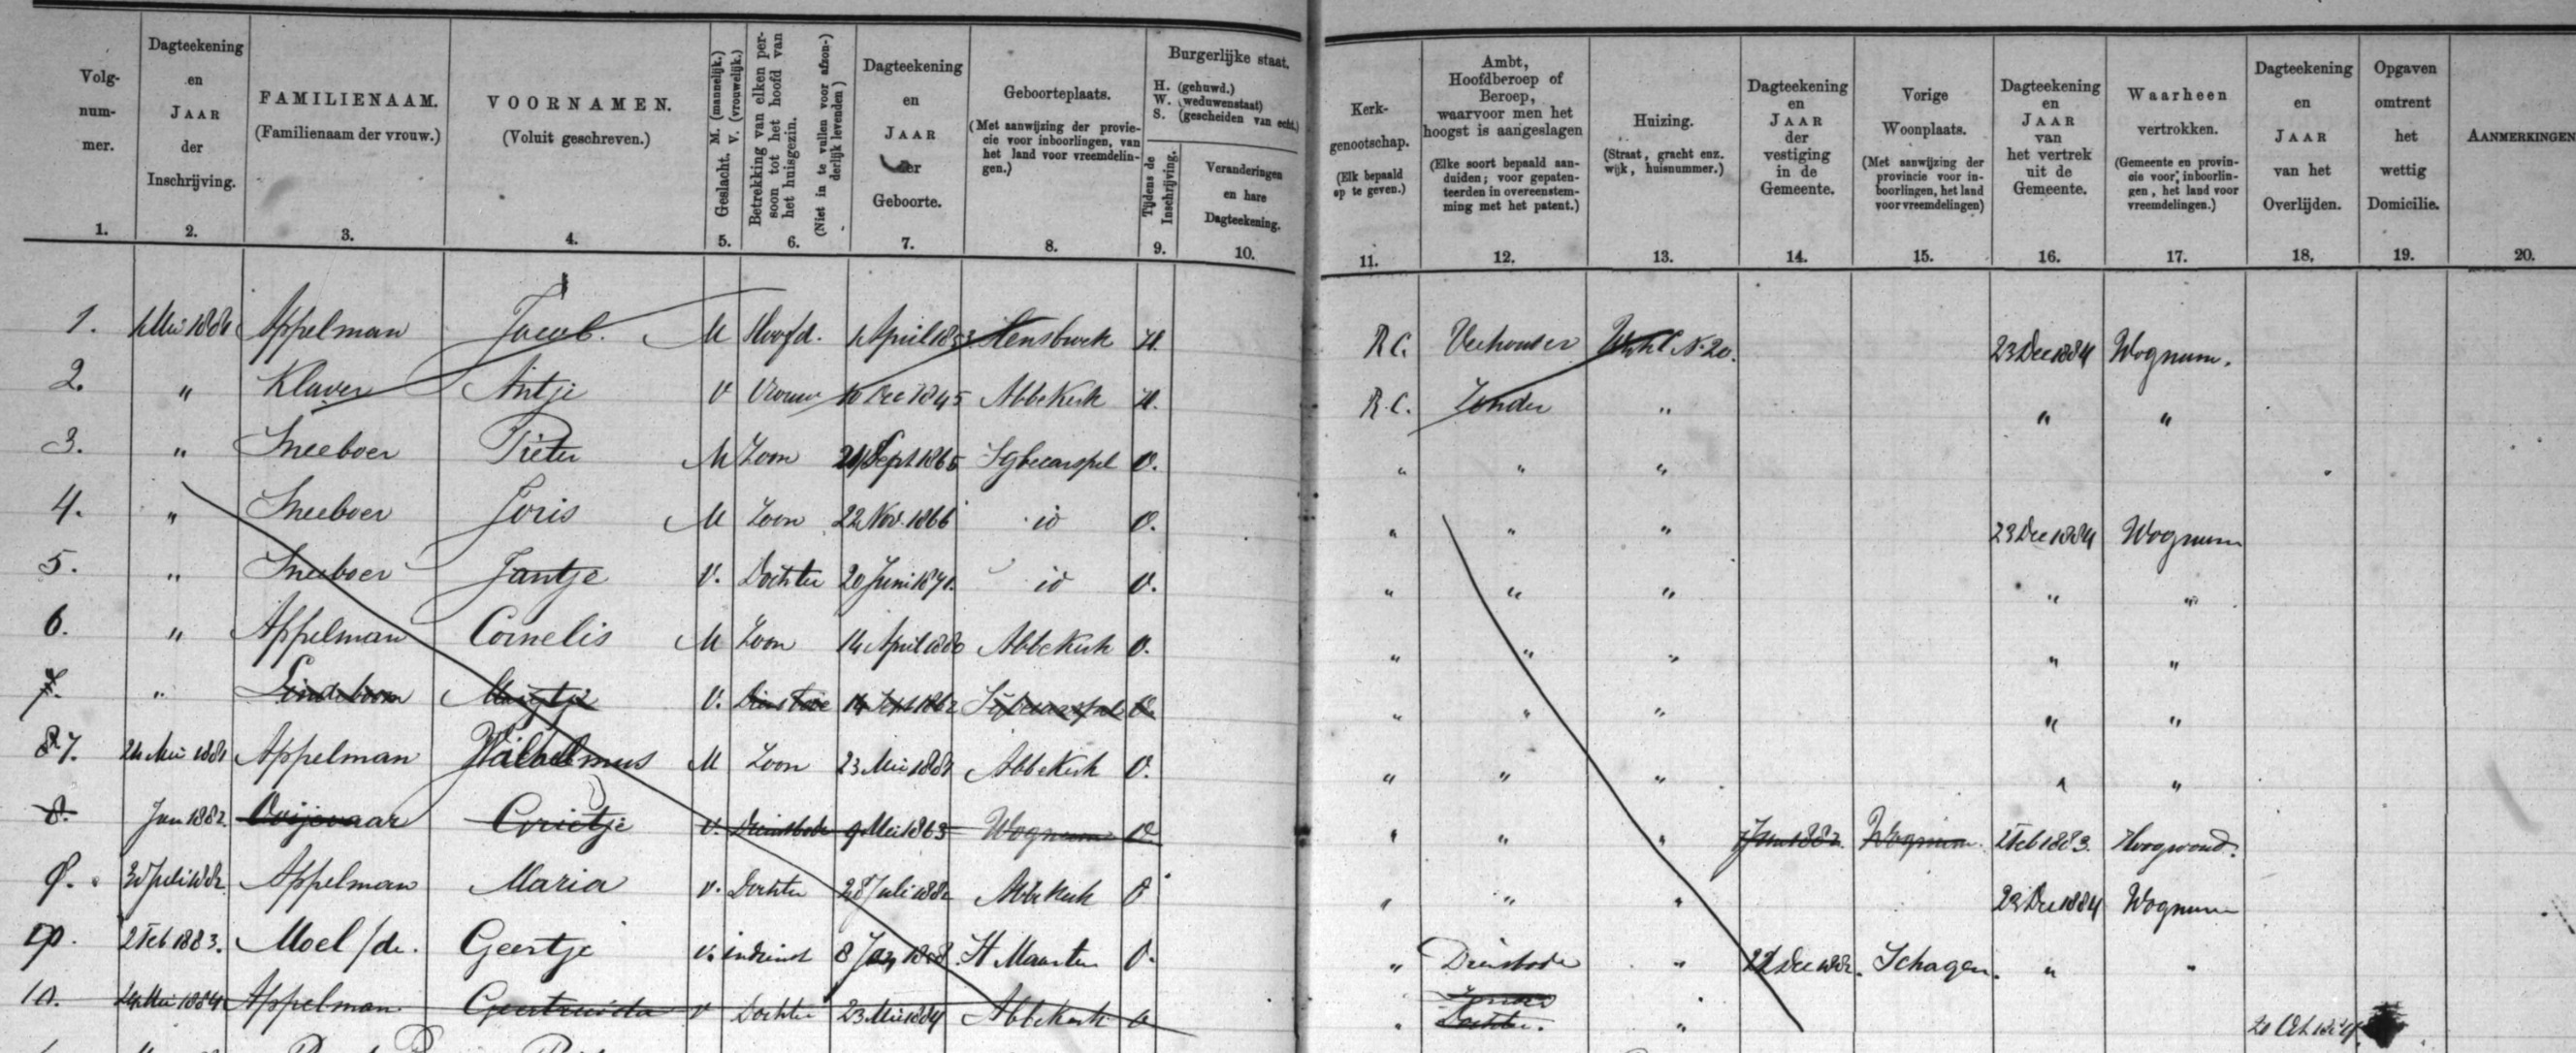 Volgnummer.
1.
Dagteekening en JAAR der Inschrijving.
2.
FAMILIENAAM.
(Familienaam der vrouw.)
3.
VOORNAMEN.
(Voluit geschreven.)
4.
Geslacht. M. (mannelijk.) V. (vrouwelijk.)
5.
Betrekking van elken persoon tot het hoofd van het huisgezin.
(Niet in te vullen voor afzonderlijk levenden)
6.
Dagteekening en JAAR der Geboorte.
7.
Geboorteplaats.
(Met aanwijzing der provincie voor inboorlingen, van het land voor vreemdelingen.)
8.
Burgerlijke staat.
H. (gehuwd.)
W. (weduwenstaat)
S. (gescheiden van echt.)
Tijdens de Inschrijving.
9.
Veranderingen en hare Dagteekening.
10.
Kerkgenootschap.
(Elk bepaald op te geven.)
11.
Ambt, Hoofdberoep of Beroep, waarvoor men het hoogst is aangeslagen
(Elke soort bepaald aanduiden; voor gepatenteerden in overeenstemming met het patent.)
12.
Huizing.
(Straat, gracht enz. wijk, huisnummer.)
13.
Dagteekening en JAAR der vestiging in de Gemeente.
14.
Vorige Woonplaats.
(Met aanwijzing der provincie voor inboorlingen, het land voor vreemdelingen)
15.
Dagteekening en JAAR van het vertrek uit de Gemeente.
16.
Waarheen vertrokken.
(Gemeente en provincie voor inboorlingen, het land voor vreemdelingen.)
17.
Dagteekening en JAAR van het Overlijden.
18.
Opgaven omtrent het wettig Domicilie.
19.
AANMERKINGEN
20.
1. 1 Mei 1881 Appelman Jacob. M Hoofd. 1 April 1853 Hensbroek H. R.C. Veehouder N. 20. 23 Dec 1884 Wognum.
2. " Klaver Antje V Vrouw 10 Dec 1845 Abbekerk H. R.C. Zonder " " "
3. " Sneeboer Pieter M Zoon Sept 1865 Sybecarspel O. " " "
4. " Sneeboer Joris M Zoon 22 Nov. 1866 id O. " " " 23 Dec 1884 Wognum
5. " Sneeboer Jantje V. Dochter 20 Juni 1870. id O. " " " " "
6. " Appelman Cornelis M Zoon 14 April 1880 Abbekerk O. " " " " "
7. " Lindeboom Maartje V. Dienstbode 14 Sept 1862 Sybecarspel O. " " " " "
8 7. 24 Mei 1881 Appelman Wilhelmus M Zoon 23 Mei 1881 Abbekerk O. " " " " "
8. Jan 1882. Ooijevaar Grietje V. Dienstbode 9 Mei 1863 Wognum O. " " " Jan 1882. Wognum. 2 Feb 1883. Hoogwoud.
9. 30 Juli 1882. Appelman Maria V. Dochter 28 Juli 1882 Abbekerk O " " " 23 Dec 1884 Wognum
10. 2 Feb 1883. Moel /de. Geertje V. indienst 8 St Maarten O. " Dienstbode " 22 Dec 1882. Schagen. " "
10. 24 Mei 1884 Appelman Geertruida V Dochter 23 Mei 1884 Abbekerk O " Dochter. "